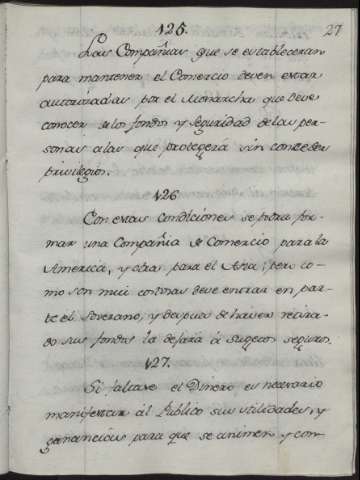 125.
27
Las Compañias que se estableceran
para mantener el Comercio deven estar
autorizadas por el Monarcha que deve
conocer los fondos y seguridad de las per-
sonas a las que protegerá sin conceder
privilegios.
126
Con estas condiciones se podra for-
mar una Compañia de Comercio para la
America, y otra para el Asia; pero co-
mo son mui costosas deve entrar en par-
te el Soverano, y despues de haver retira-
do sus fondos la dejará á sugetos seguros.
127.
Si faltare el Dinero es necesario
manifestar al Publico sus utilidades, y
ganancias para que se animen y con-